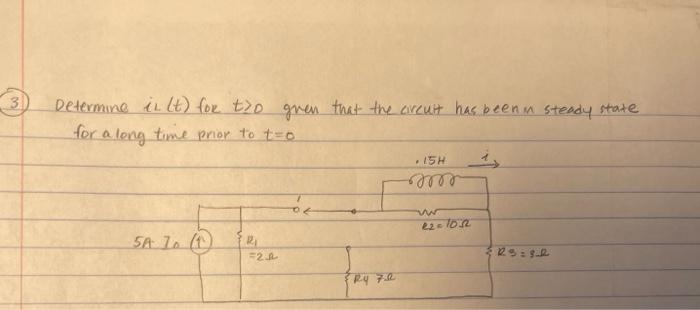 3 Determine iL (t) for t>0 given that the circuit has been in steady state
for a long time prior to t=0
.15H i
R2=10Ω
5A I0 R1
=2Ω
R3=8Ω
R4 7Ω